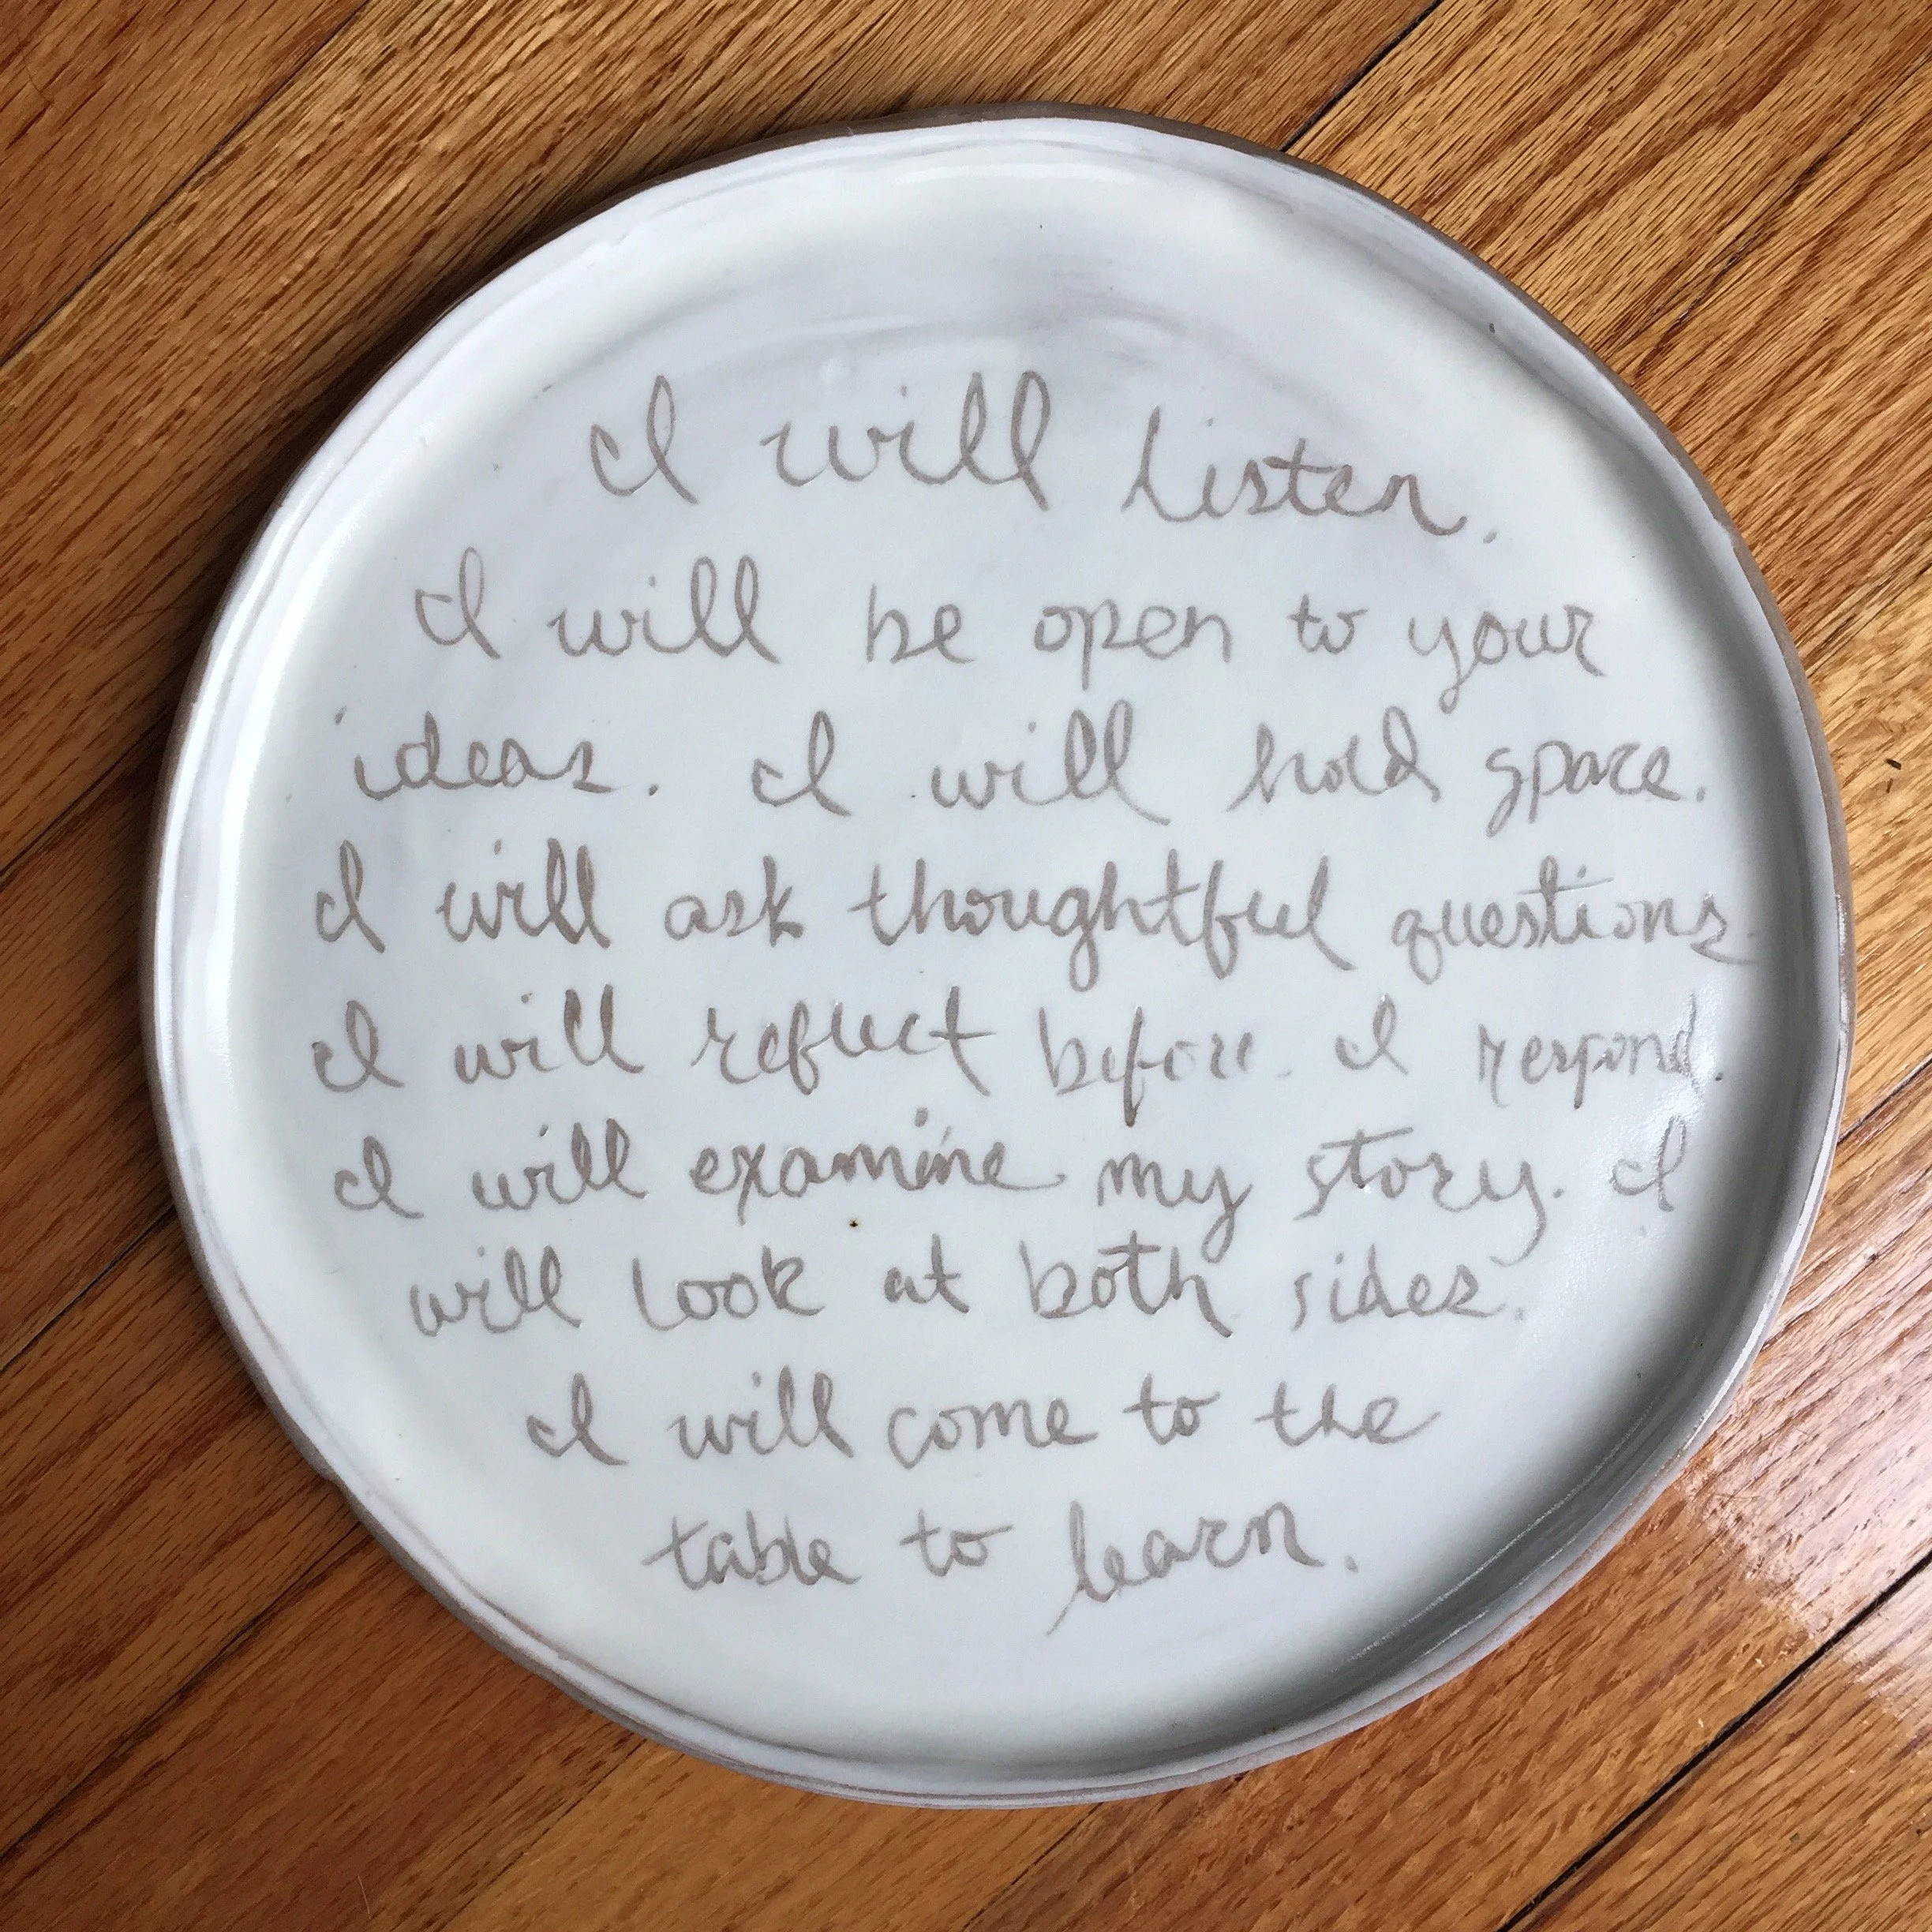 I will listen.
I will be open to your
ideas. I will hold space.
I will ask thoughtful questions.
I will reflect before I respond.
I will examine my story. I
will look at both sides.
I will come to the
table to learn.